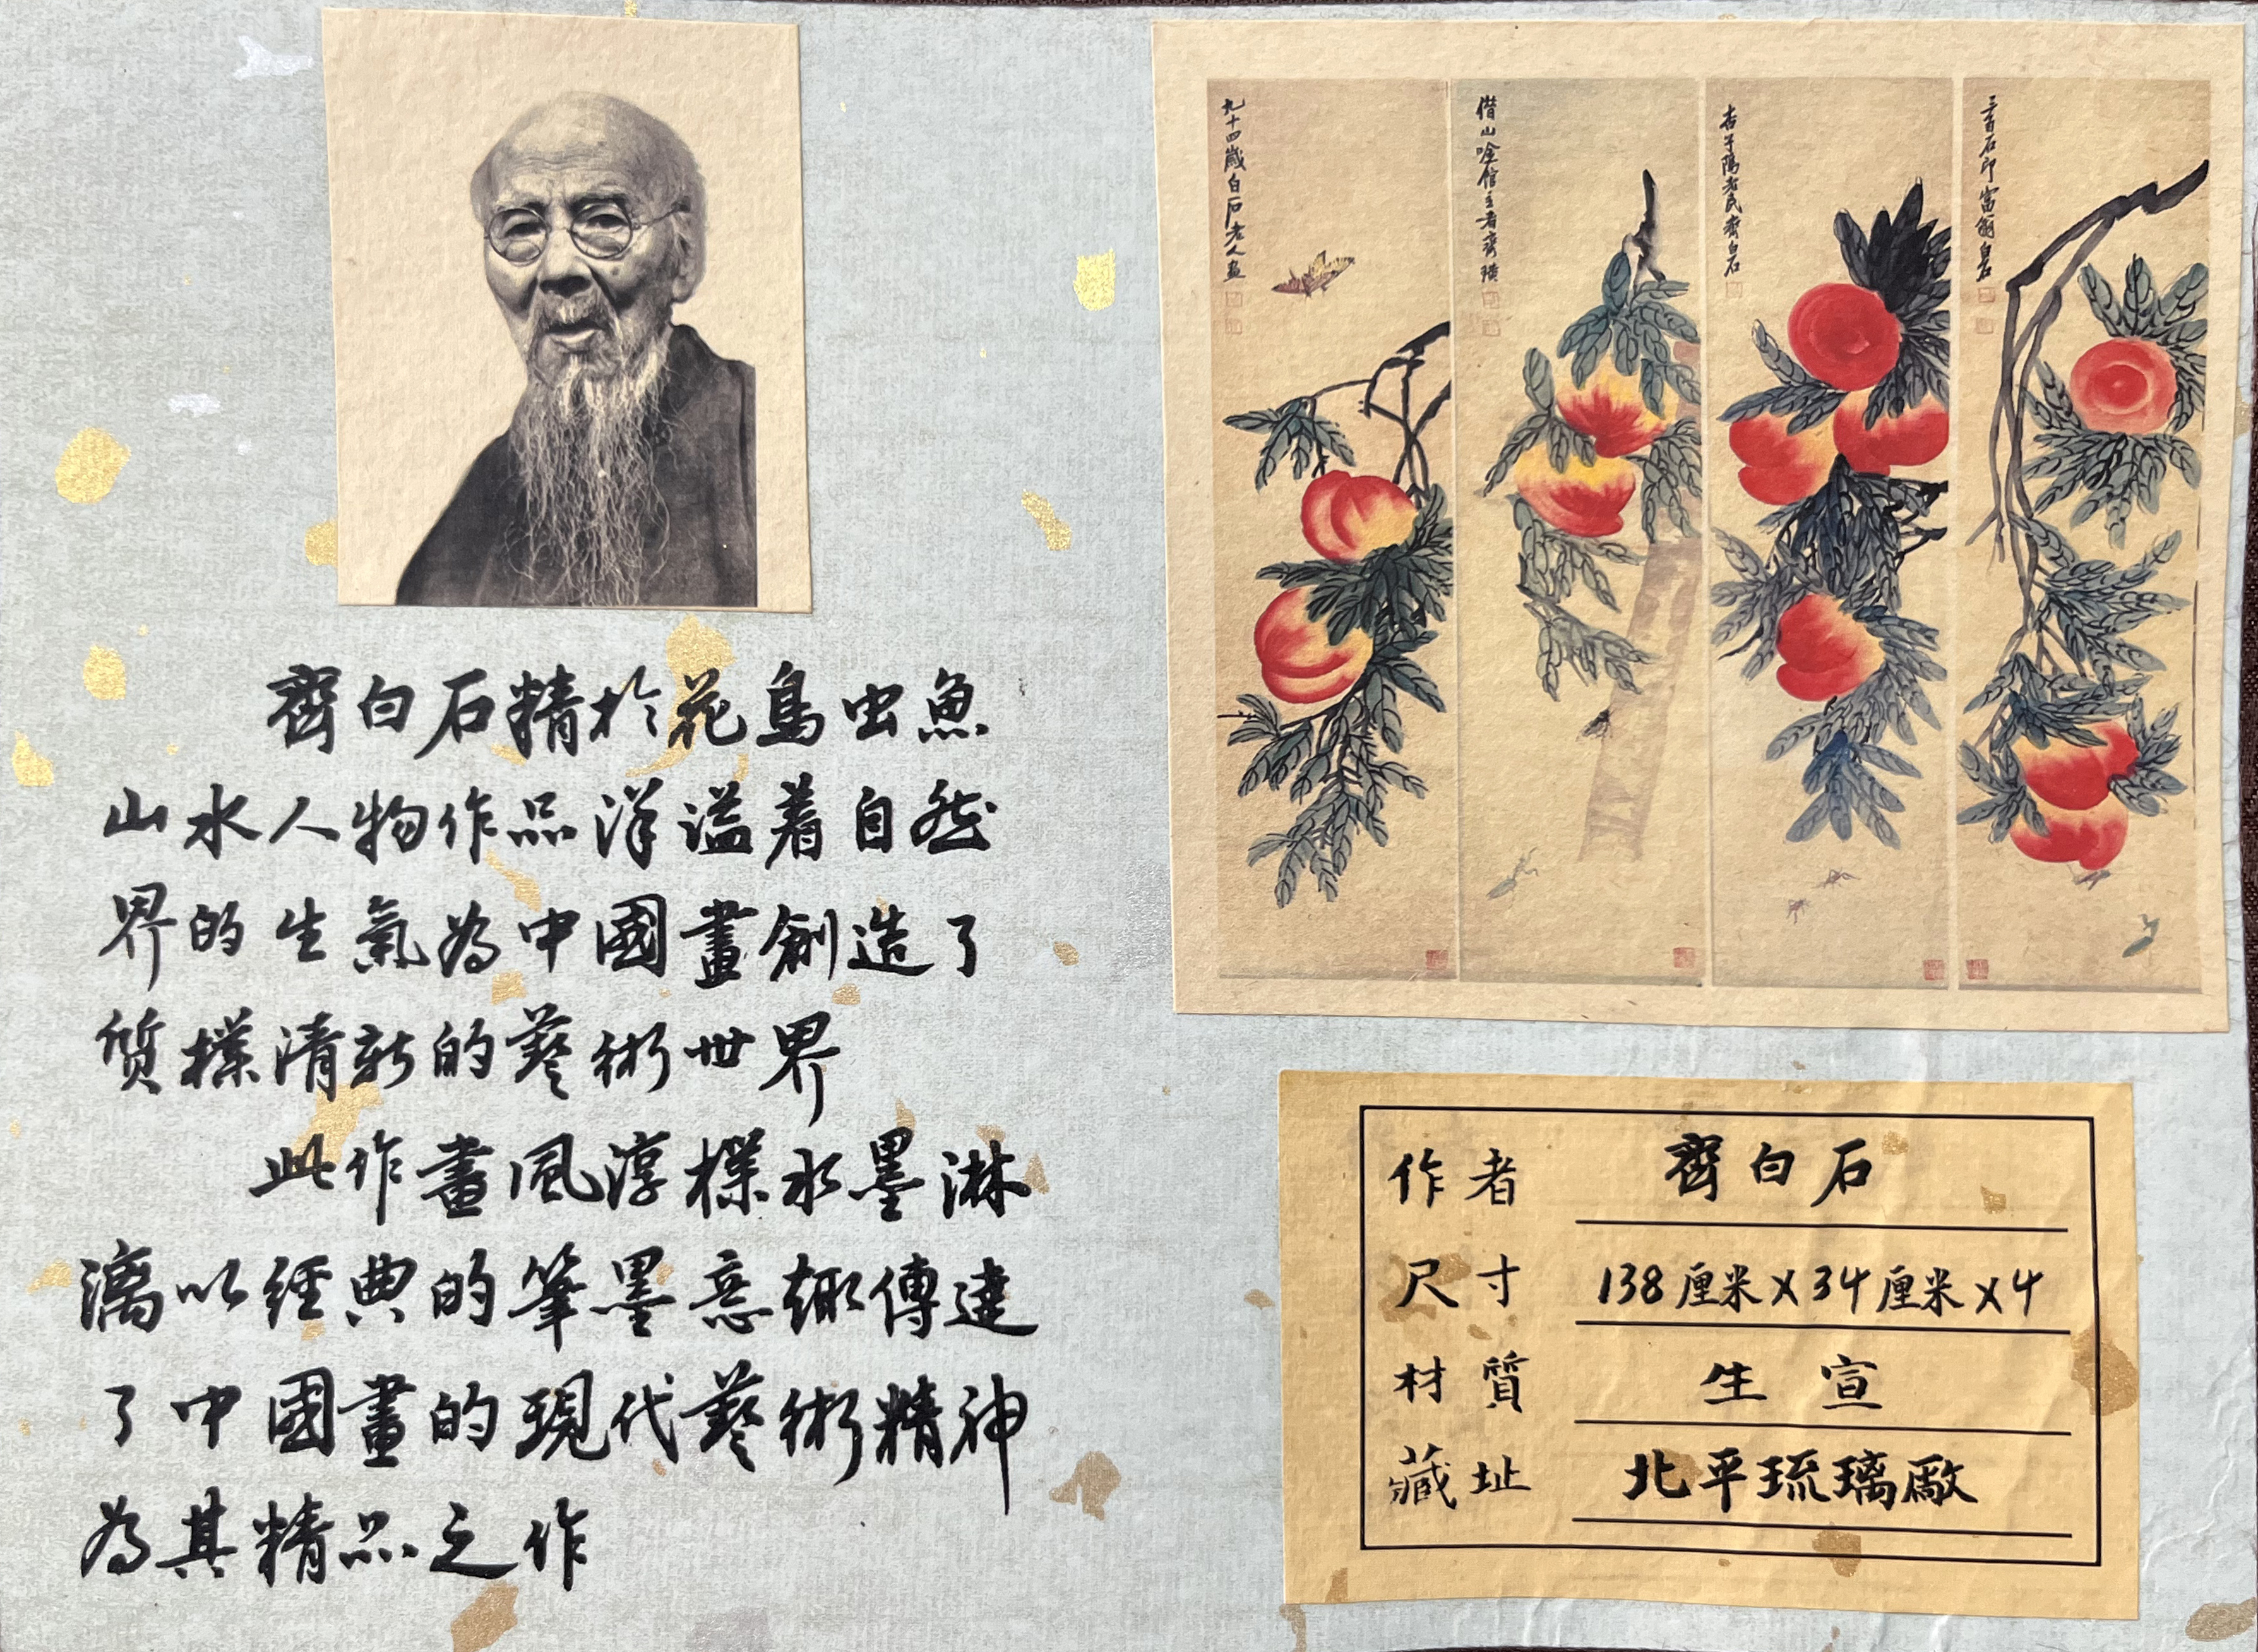 齊白石精於花鳥虫魚
山水人物作品洋溢着自然
界的生氣為中國畫創造了
质樸清新的藝術世界
此作畫風淳樸水墨淋
漓以經典的筆墨意趣傳達
了中國畫的現代藝術精神
為其精品之作
九十四歲白石老人畫
借山唫館主者齊璜
杏子隖老民齊白石
三百石印富翁白石
作者 齊白石
尺寸 138厘米X34厘米X4
材質 生宣
藏址 北平琉璃廠